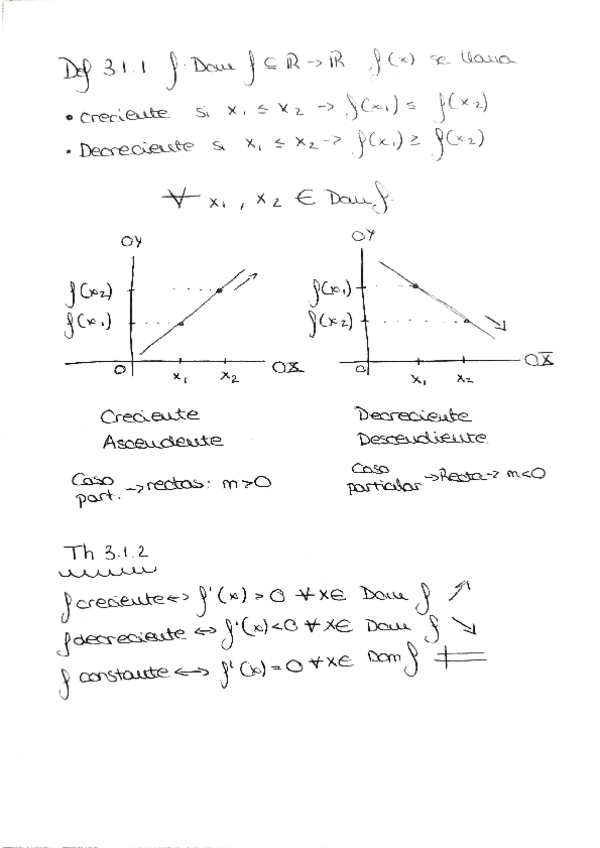 Def 3.1.1 f: Dom f ⊆ ℝ → ℝ f(x) se llama
• Creciente si x₁ ≤ x₂ → f(x₁) ≤ f(x₂)
• Decreciente si x₁ ≤ x₂ → f(x₁) ≥ f(x₂)
∀ x₁, x₂ ∈ Dom f.
OY OY
f(x₂) f(x₁)
f(x₁) f(x₂)
O x₁ x₂ OX O x₁ x₂ OX
Creciente Decreciente
Ascendente Descendiente
Caso part. → rectas: m>0 Caso particular → Recta → m<0
Th 3.1.2
f creciente ↔ f'(x) > 0 ∀x∈ Dom f ↗
f decreciente ↔ f'(x) < 0 ∀x∈ Dom f ↘
f constante ↔ f'(x) = 0 ∀x∈ Dom f